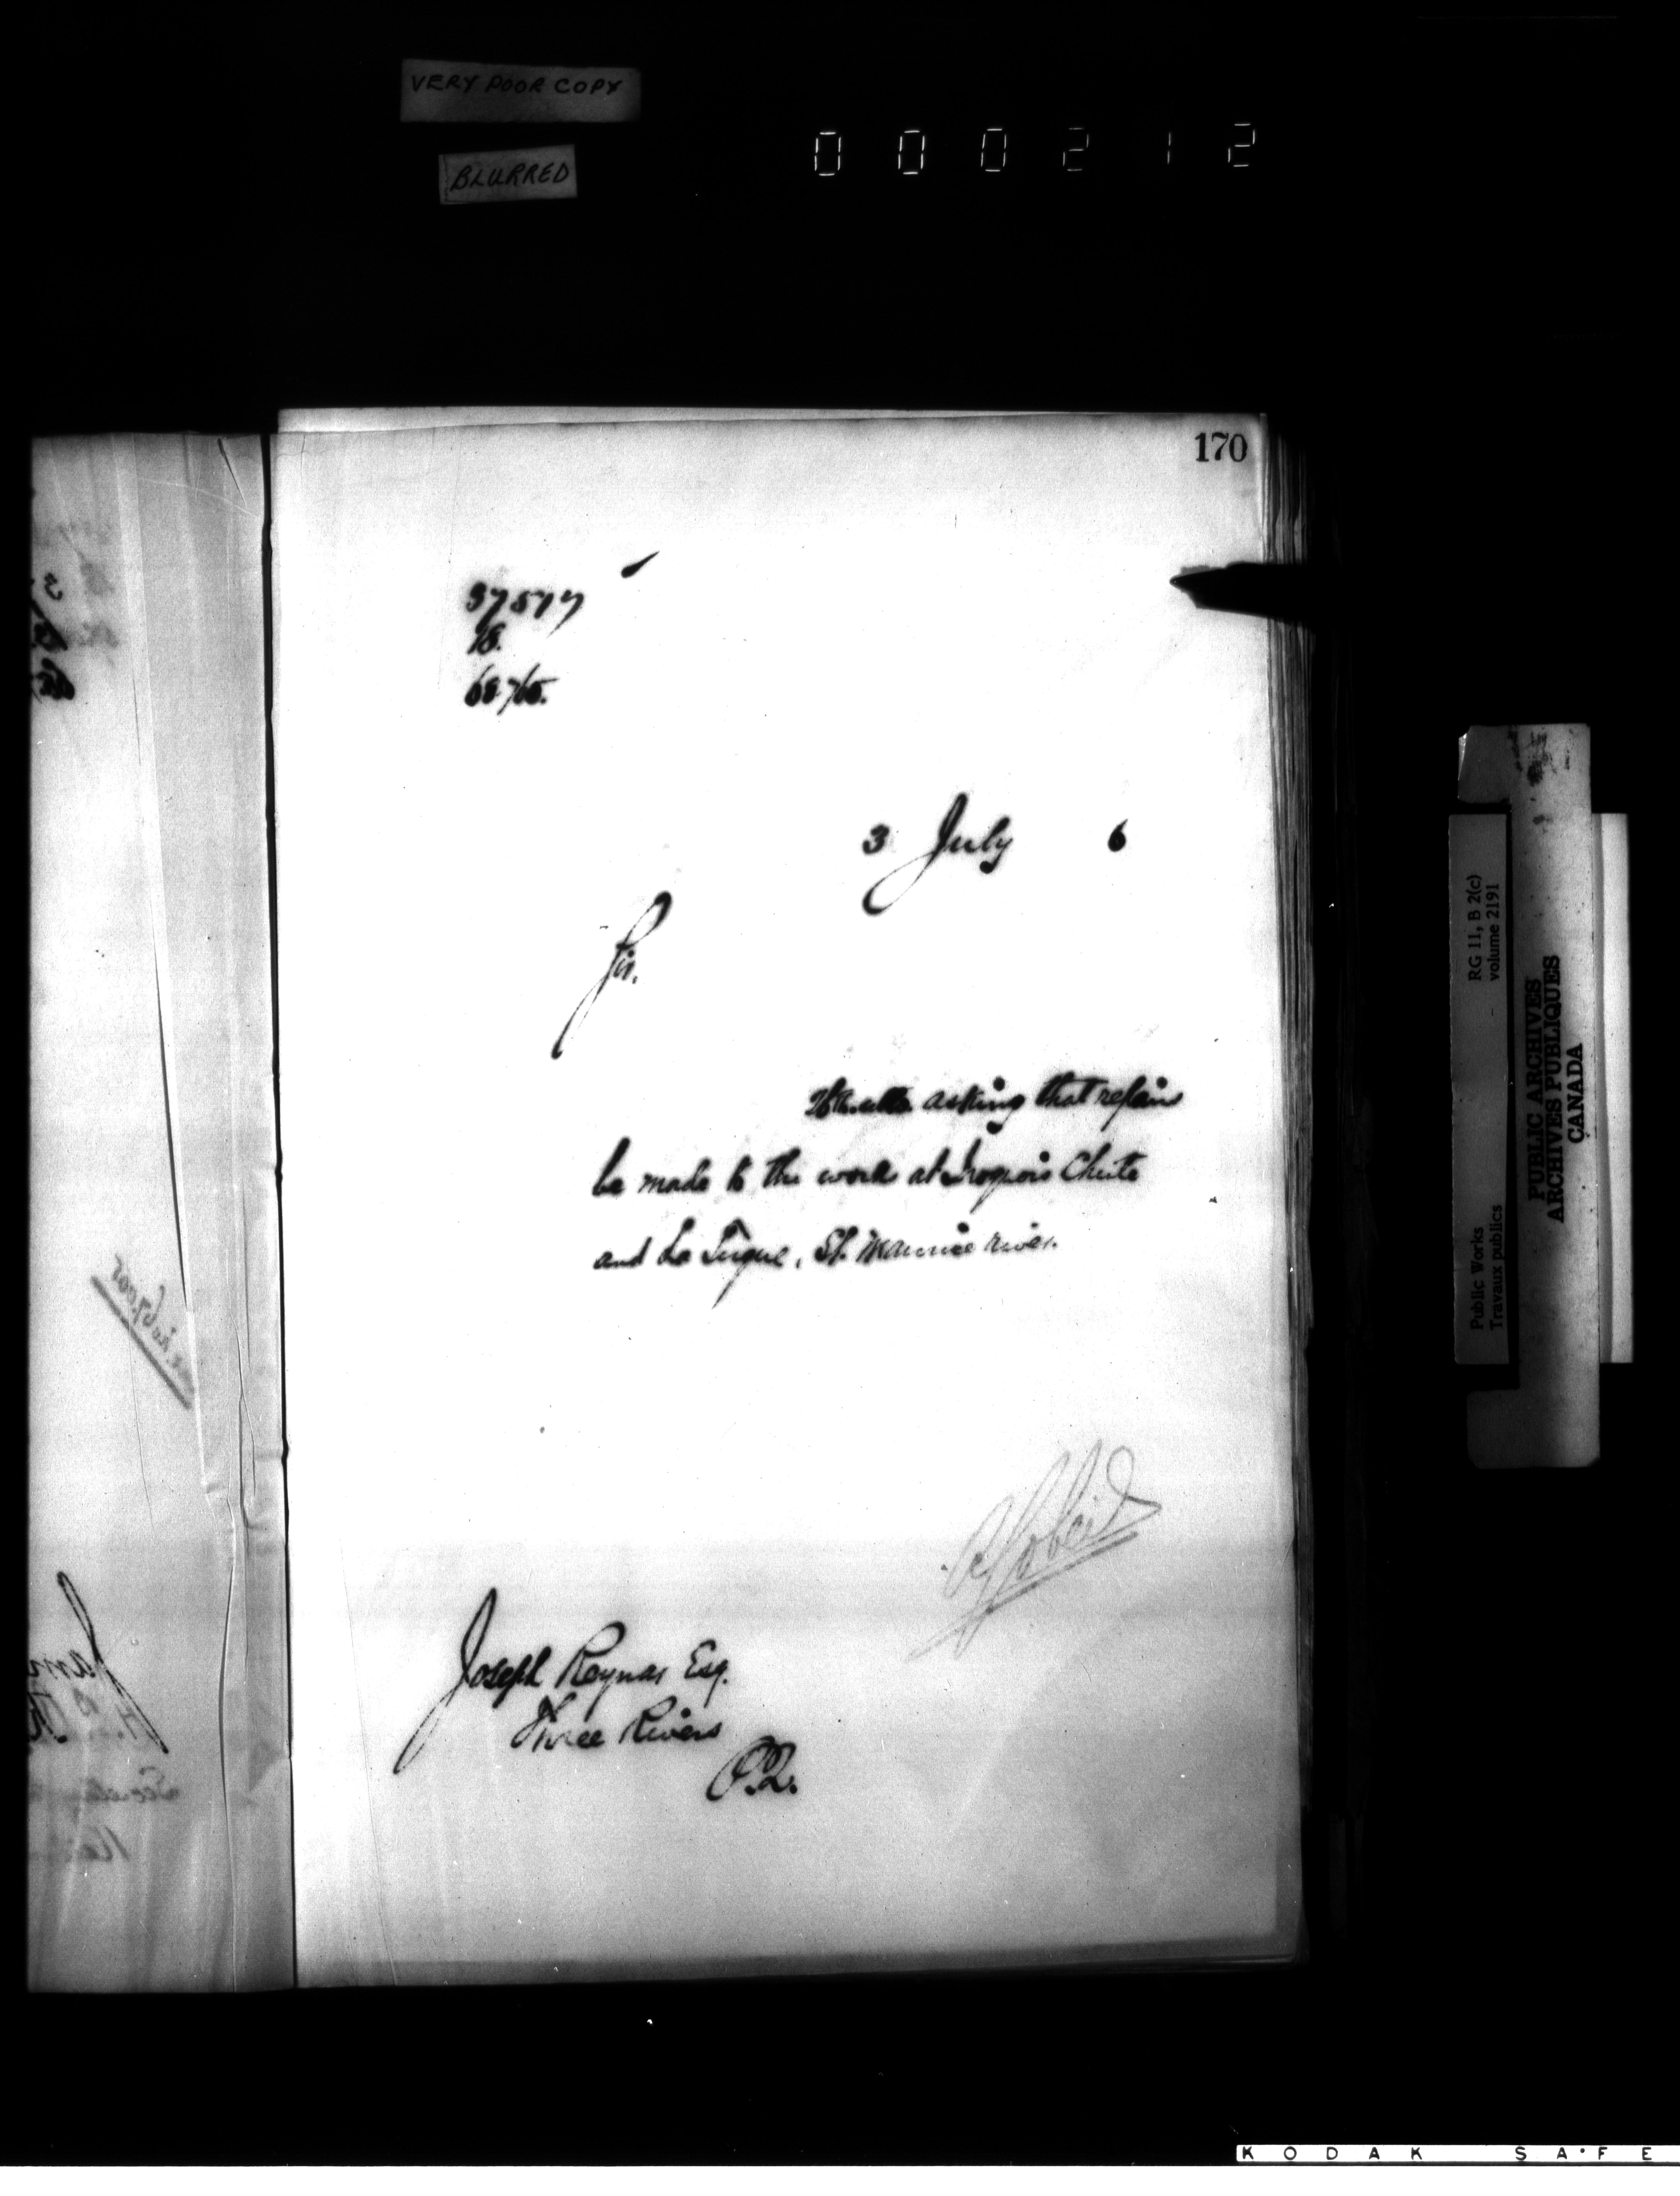 VERY POOR COPY
BLURRED
000212
170
37517
18.
68765.
3 July 6
Sir.
asking that repairs
be made to the works at Iroquois Chute
and La Tuque, St. Maurice river.
A Gobeil
Joseph Reynar Esq.
Three Rivers
P.Q.
Public Works
Travaux publics
RG 11, B 2(c)
volume 2191
PUBLIC ARCHIVES
ARCHIVES PUBLIQUES
CANADA
KODAK SAFE